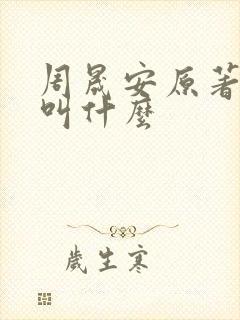 周晟安原著
叫什麼
歲生寒